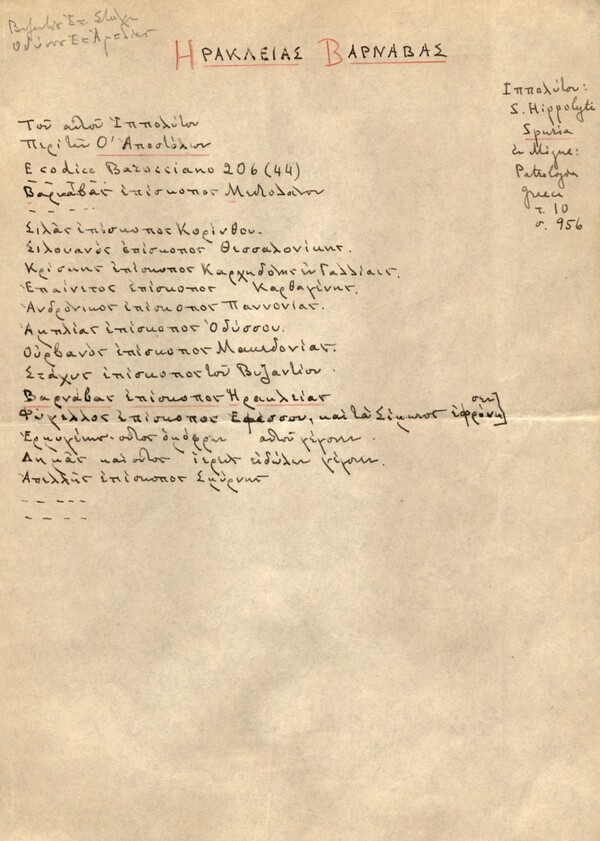 Βυζαντίου Επ. Στάχυ
Οδύσσου Επ. Αμπλίας
ΗΡΑΚΛΕΙΑΣ ΒΑΡΝΑΒΑΣ
Ιππολύτου:
S. Hippolyti
Spuria
ἐν Migne:
Patrologia
Greca
τ. 10
σ. 956
Τοῦ αὐτοῦ Ἱππολύτου
Περὶ τῶν Ο' Ἀποστόλων
E codice Barocciano 206 (44)
Βαρνάβας ἐπίσκοπος Μεδιολάνων
- - - -
Σιλᾶς ἐπίσκοπος Κορίνθου.
Σιλουανὸς ἐπίσκοπος Θεσσαλονίκης.
Κρίσκης ἐπίσκοπος Καρχηδόνης ἐν Γαλλίαις.
Ἐπαίνετος ἐπίσκοπος Καρθαγένης.
Ἀνδρόνικος ἐπίσκοπος Παννονίας.
Ἀμπλίας ἐπίσκοπος Ὀδύσσου.
Οὐρβανὸς ἐπίσκοπος Μακεδονίας.
Στάχυς ἐπίσκοπος τοῦ Βυζαντίου
Βαρνάβας ἐπίσκοπος Ἡρακλείας
Φύγελλος ἐπίσκοπος Ἐφέσσου, καὶ τὰ Σίμωνος ἐφρόνησεν
Ἑρμογένης· οὗτος ὁμόφρων αὐτοῦ γέγονεν.
Δημᾶς καὶ οὗτος ἱερεὺς εἰδώλων γέγονεν.
Ἀπελλῆς ἐπίσκοπος Σμύρνης
- - - - -
- - - - -